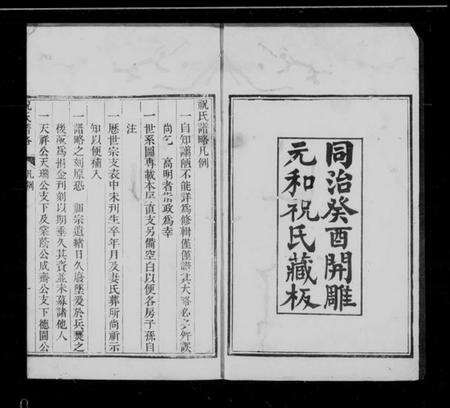 同治癸酉開雕
元和祝氏藏板
祝氏譜略凡例
一自知謭陋不能詳為修輯僅僅譜其大略名之所誤
尚乞　高明者指政為幸
一世系圖專載本屋直支另備空白以便各房子孫自
注
一歷世宗支表中未刊生卒年月及妻氏葬所尚祈示
知以便補入
一譜略之刻原恐　宗遺緒日久廢墜爰於兵燹之
後捐金刊刻以期垂久其資並未募諸他人
一天祥公天瑞公支下及棠蔭公成齋公支下德園公
祝氏譜略
凡例